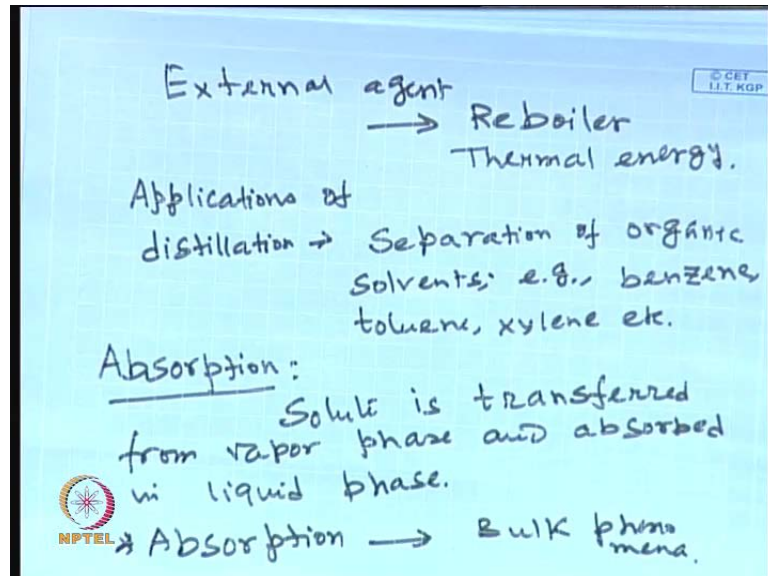 External agent
© CET
I.I.T. KGP
→ Reboiler
Thermal energy.
Applications of
distillation → Separation of organic
solvents; e.g., benzene,
toluene, xylene etc.
Absorption:
Solute is transferred
from vapor phase and absorbed
in liquid phase.
* Absorption → Bulk pheno
mena.
NPTEL